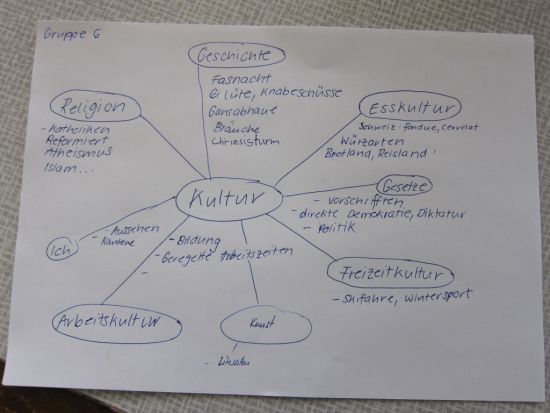 Gruppe 6
Geschichte
Fasnacht
Gilüte, Knabeschüsse
Gansabhaue
Bräuche
Chriesisturm
Religion
- Katholiken
Reformiert
Atheismus
Islam...
Esskultur
Schweiz: fondue, Cervelat
Würzarten
Brotland, Reisland
Kultur
Gesetze
- Vorschriften
- direkte Demokratie, Diktatur
- Politik
Ich
- Aussehen
- Bildung
- Geregelte Arbeitszeiten
-
Freizeitkultur
- Skifahre, Wintersport
Arbeitskultur
Kunst